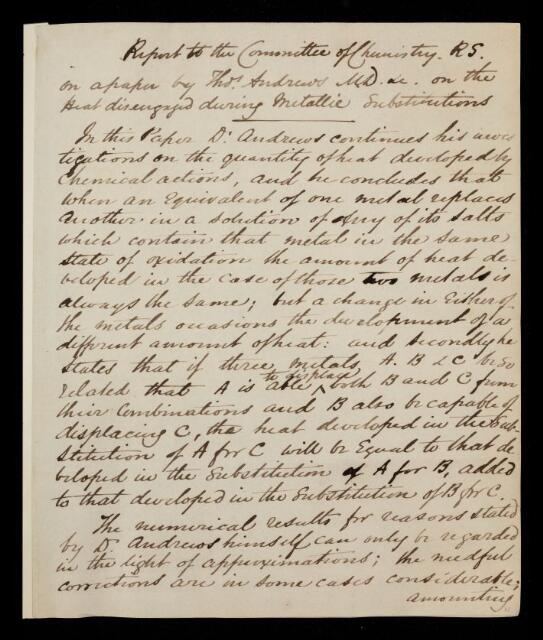 Report to the Committee of Chemistry. R S.
on a paper by Thos. Andrews M.D. &c. on the
Heat disengaged during Metallic Substitutions
In this Paper Dr. Andrews continues his inves
tigations on the quantity of heat developed by
Chemical actions, and he concludes that
when an Equivalent of one metal replaces
another in a solution of any of its salts
which contain that metal in the same
state of oxidation the amount of heat de-
veloped in the case of those two metals is
always the same; but a change in Either of
the metals occasions the development of a
different amount of heat: and secondly he
states that if three metals, A. B & C be so
to displace
related that A is able both B and C from
their Combinations and B also be capable of
displacing C, the heat developed in the Sub-
stitution of A for C will be Equal to that de-
veloped in the Substitution of A for B, added
to that developed in the Substitution of B for C.
The numerical results for reasons stated
by Dr. Andrews himself can only be regarded
in the light of approximations; the needful
corrections are in some cases considerable;
amounting